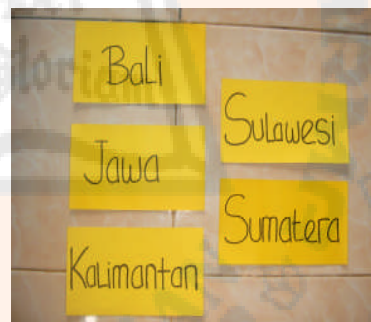 Bali
Jawa
Kalimantan
Sulawesi
Sumatera